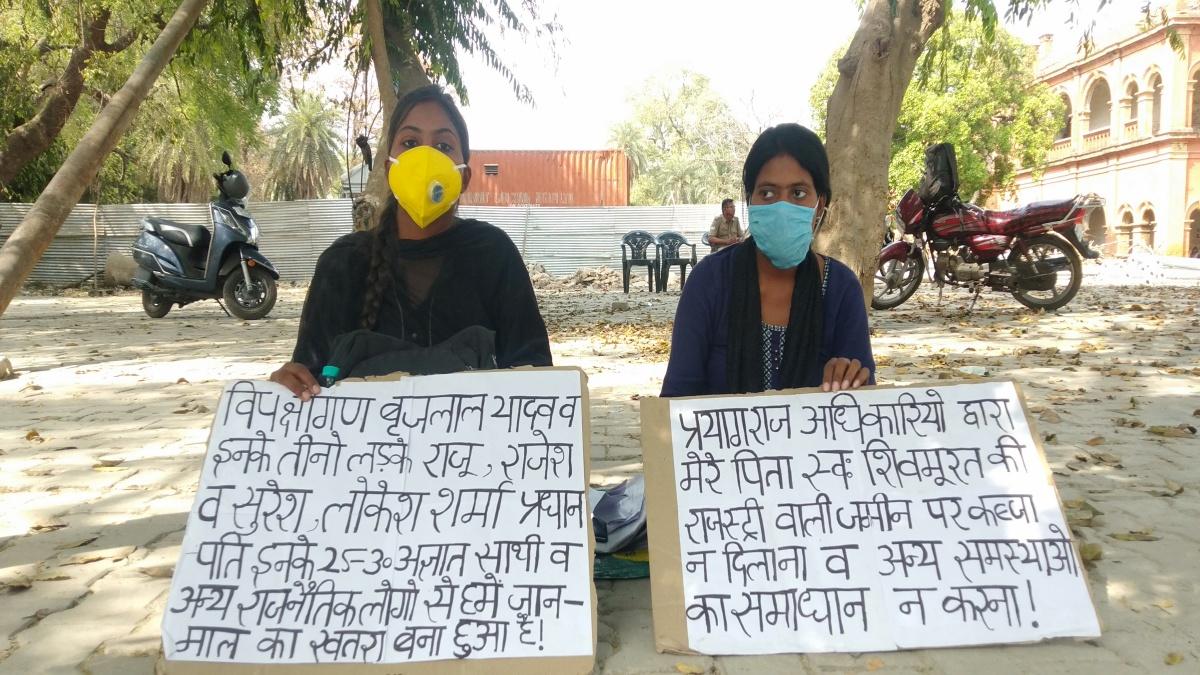 विपक्षीगण बृजलाल यादव व
इनके तीनो लड़के राजू, राजेश
व सुरेश, लोकेश शर्मा प्रधान
पति इनके 25-30 अज्ञात साथी व
अन्य राजनैतिक लोगो से हमें जान-
माल का खतरा बना हुआ है!
प्रयागराज अधिकारियो द्वारा
मेरे पिता स्वः शिवमूरत की
राजस्ट्री वाली जमीन पर कब्जा
न दिलाना व अन्य समस्याओ
का समाधान न करना!